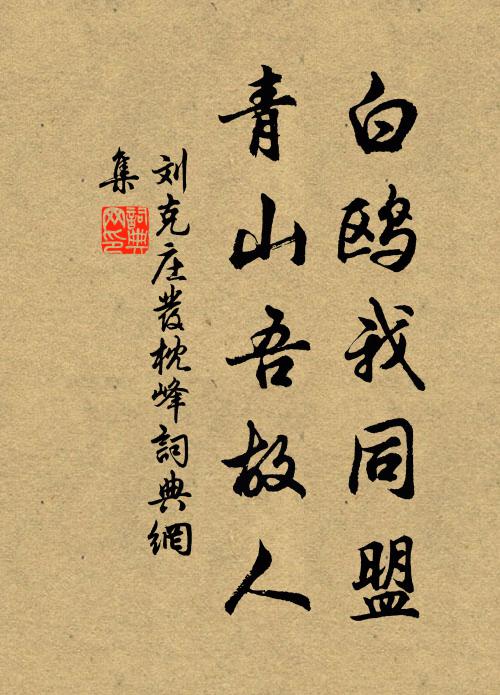 白鸥我同盟
青山吾故人
刘克庄发枕峰詞典網
集
詞典
网印